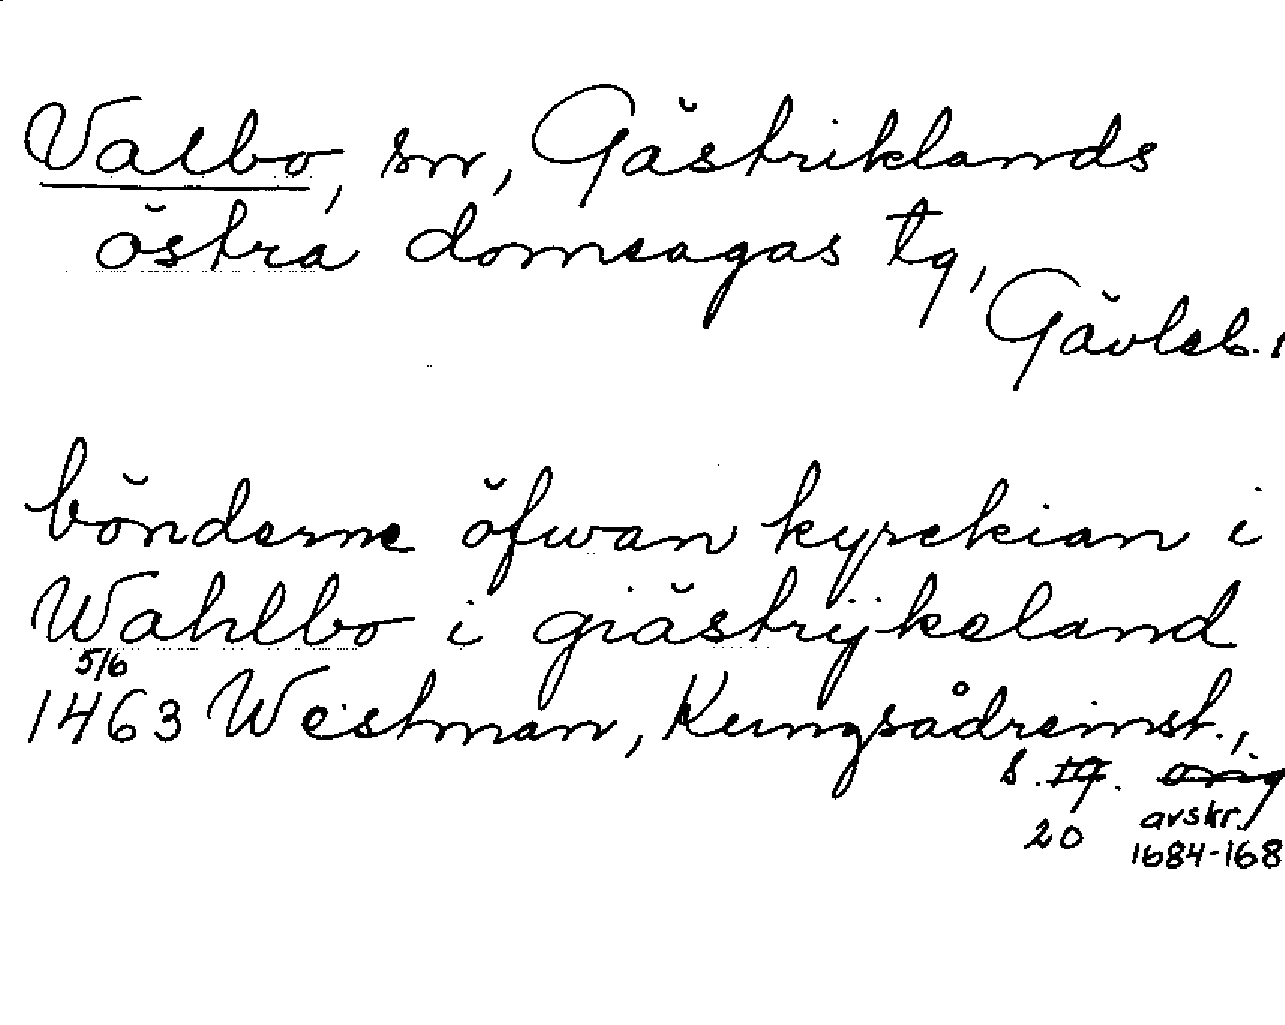 Valbo, sn, Gästriklands
östra domsagas tg,
Gävleb. l
bönderne öfwan kyrckian i
Wahlbo i giästrijkeland
5/6
1463 Westman, Kungsådreinst.,
s. 19. orig
20 avskr.
1684-168